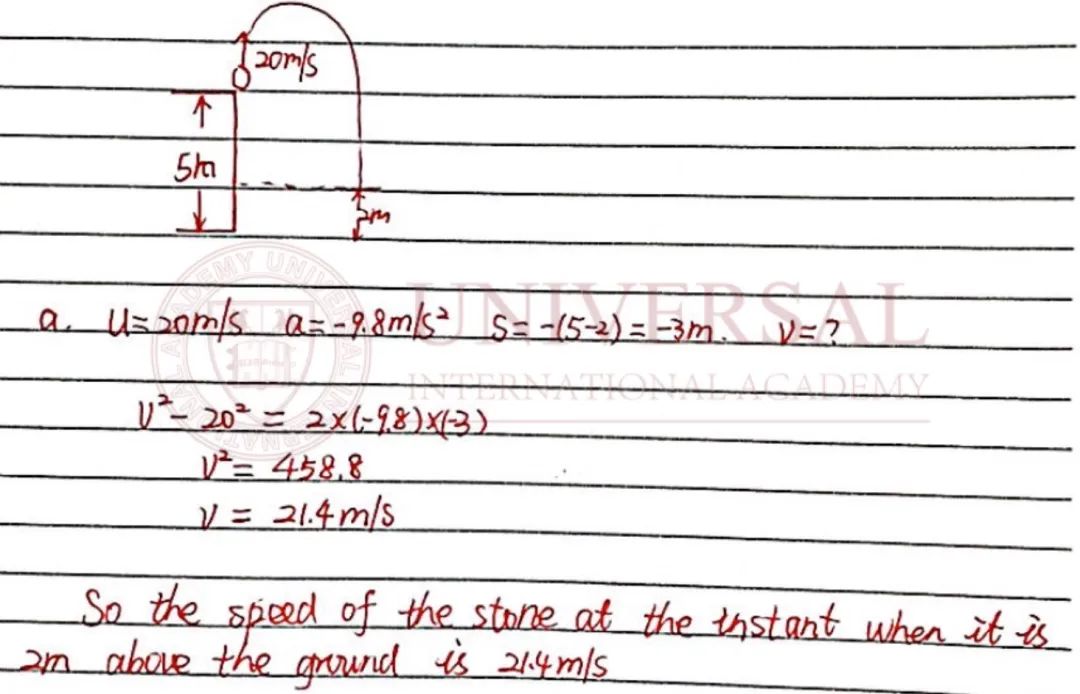 20m/s
5m
2m
a. u=20m/s a=-9.8m/s² s=-(5-2)=-3m. v=?
v²-20²=2×(-9.8)×(-3)
v²=458.8
v=21.4m/s
So the speed of the stone at the instant when it is
2m above the ground is 21.4m/s
UNIVERSAL
INTERNATIONAL ACADEMY